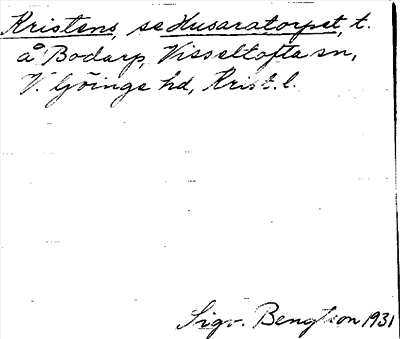 Kristens, se Husaratorpet, t.
å Bodarp, Visseltofta sn,
V. Göinge hd, Krist. l.
Sigv. Bengtson 1931